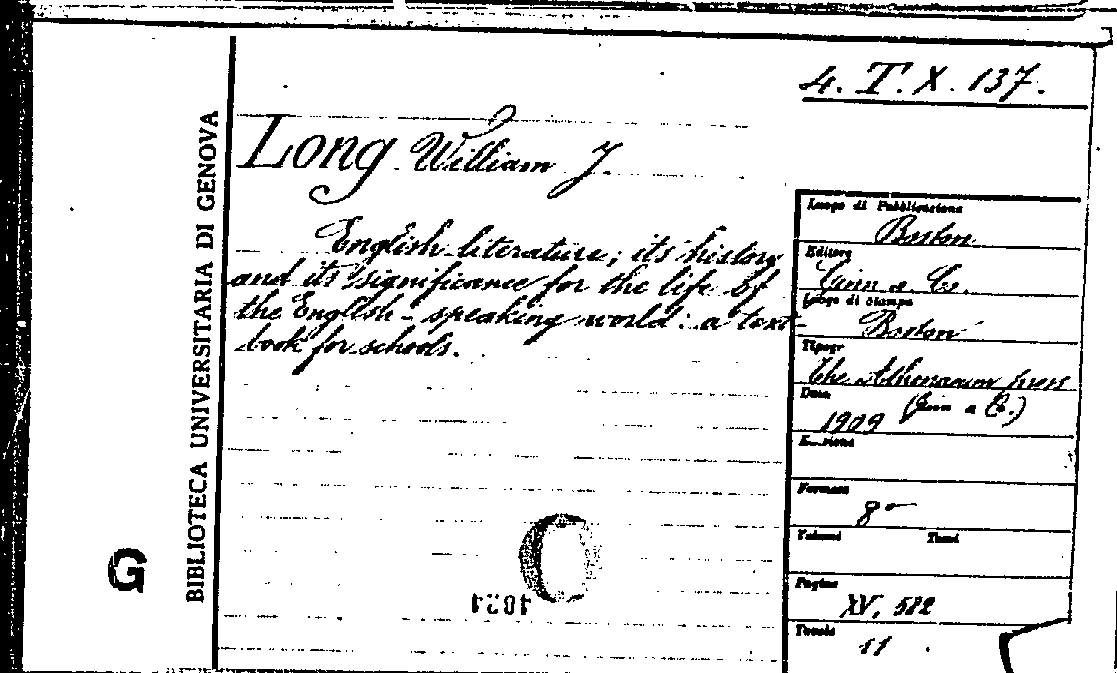 4. T. X. 137.
BIBLIOTECA UNIVERSITARIA DI GENOVA
G
Long William J.
English literature; its history
and its significance for the life of
the English-speaking world: a text-
book for schools.
Luogo di Pubblicazione
Boston
Editore
Ginn a. C.
Luogo di stampa
Boston
Tipogr
The Athenaeum press
(Ginn a C.)
Data
1909
Formato
8°
Volumi
Tomi
Pagine
XV, 582
Tavole
11